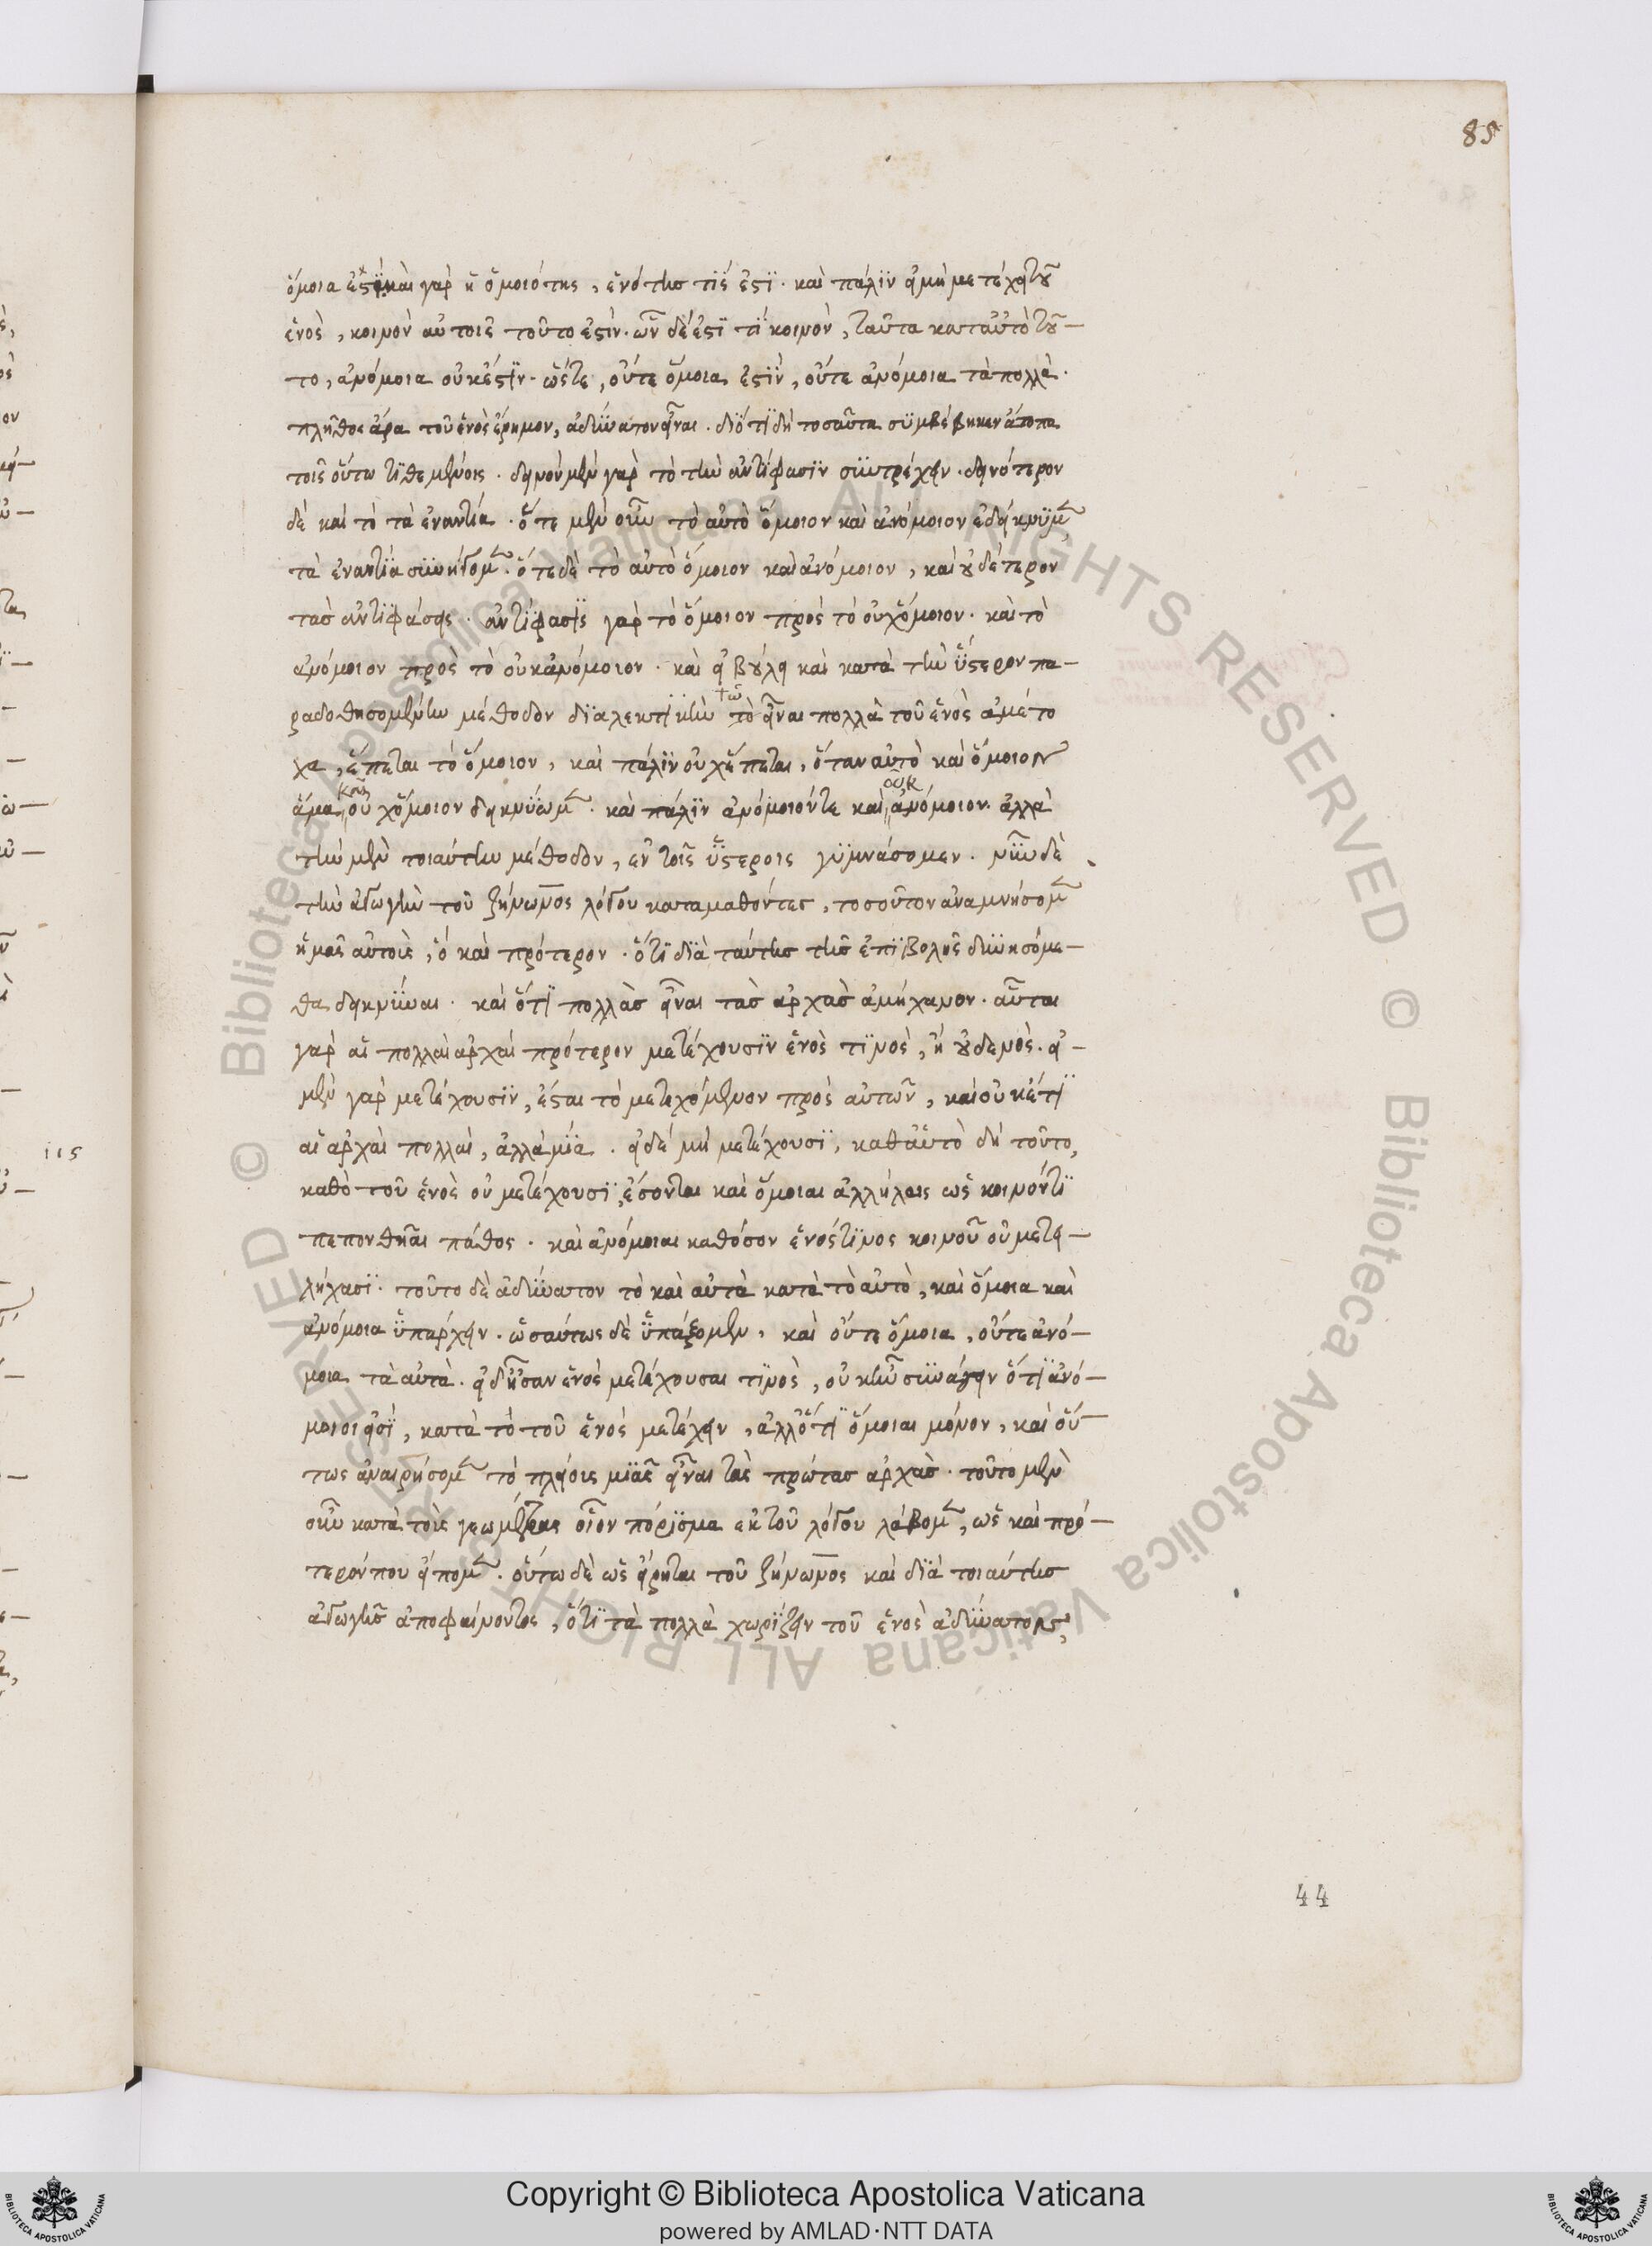 85
ὅμοια ἐστὶ καὶ γὰρ ἡ ὁμοιότης, ἑνότης τίς ἐστι. καὶ πάλιν εἰ μὴ μετέχει τοῦ
ἑνὸς, κοινὸν αὐτοῖς τοῦτο ἐστὶν. ὧν δέ ἐστι τὶ κοινὸν, ταῦτα κατ' αὐτὸ τοῦ-
το, ἀνόμοια οὐκ ἔστιν. ὥστε, οὔτε ὅμοια ἐστὶν, οὔτε ἀνόμοια τὰ πολλὰ.
πλῆθος ἄρα τοῦ ἑνὸς ἔρημον, ἀδύνατον εἶναι. διότι δὴ τοσαῦτα συμβέβηκεν ἄτοπα
τοῖς οὕτω τιθεμένοις. δεινὸν μὲν γὰρ τὸ τὴν ἀντίφασιν συντρέχειν. δεινότερον
δὲ καὶ τὸ τὰ ἐναντία. ὅτε μὲν οὖν τὸ αὐτὸ ὅμοιον καὶ ἀνόμοιον ἐδείκνυμεν,
τὰ ἐναντία συνήγομεν. ὅτε δὲ τὸ αὐτὸ ὅμοιον καὶ ἀνόμοιον, καὶ οὐδέτερον
τὰς ἀντιφάσεις. ἀντίφασις γὰρ τὸ ὅμοιον πρὸς τὸ οὐχ ὅμοιον. καὶ τὸ
ἀνόμοιον πρὸς τὸ οὐκ ἀνόμοιον. καὶ εἰ βούλει καὶ κατὰ τὴν ὕστερον πα-
ραδοθησομένην μέθοδον διαλεκτικὴν τὸ τῷ εἶναι πολλὰ τοῦ ἑνὸς ἀμέτο
χα, ἕπεται τὸ ὅμοιον, καὶ πάλιν οὐχ ἕπεται, ὅταν αὐτὸ καὶ ὅμοιον
ἅμα καὶ οὐχ ὅμοιον δεικνύωμεν. καὶ πάλιν ἀνόμοιόν τε καὶ οὐκ ἀνόμοιον. ἀλλὰ
τὴν μὲν τοιαύτην μέθοδον, ἐν τοῖς ὕστεροις γυμνάσομεν. νῦν δὲ
τὴν ἀγωγὴν τοῦ ζήνωνος λόγου καταμαθόντες, τοσοῦτον ἀναμνήσομεν
ἡμᾶς αὐτοὺς, ὃ καὶ πρότερον. ὅτι διὰ ταύτης τῆς ἐπιβολῆς δυνησόμε-
θα δεικνύναι. καὶ ὅτι πολλὰς εἶναι τὰς ἀρχὰς ἀμήχανον. αὗται
γὰρ αἱ πολλαὶ ἀρχαὶ πρότερον μετέχουσιν ἑνὸς τινὸς, ἢ οὐδενὸς. εἰ-
μὲν γὰρ μετέχουσιν, ἔσται τὸ μετεχόμενον πρὸς αὐτῶν, καὶ οὐκέτι
αἱ ἀρχαὶ πολλαὶ, ἀλλὰ μία. εἰ δὲ μὴ μετέχουσι, καθ' αὑτὸ δὴ τοῦτο,
καθὸ τοῦ ἑνὸς οὐ μετέχουσι, ἔσονται καὶ ὅμοιαι ἀλλήλαις ὡς κοινόν τι
πεπονθῆαι πάθος. καὶ ἀνόμοιαι καθόσον ἑνός τινος κοινοῦ οὐ μετει-
λήχασι. τοῦτο δὲ ἀδύνατον τὸ καὶ αὐτὰ κατὰ τὸ αὐτὸ, καὶ ὅμοια καὶ
ἀνόμοια ὑπάρχειν. ὡσαύτως δὲ ὑπάξομεν, καὶ οὔτε ὅμοια, οὔτε ἀνό-
μοια τὰ αὐτὰ. εἰ δ' ἦσαν ἑνὸς μετέχουσαι τινὸς, οὐκ ἦν συνάγειν ὅτι ἀνό-
μοιοι εἰσὶ, κατὰ τὸ τοῦ ἑνὸς μετέχειν, ἀλλ' ὅτι ὅμοιαι μόνον, καὶ οὕ-
τως ἀναιρήσομεν τὸ πλείους μιᾶς εἶναι τὰς πρώτας ἀρχὰς. τοῦτο μὲν
οὖν κατὰ τοὺς γεωμέτρας οἷον πόρισμα ἐκ τοῦ λόγου λάβομεν, ὡς καὶ πρό-
τερόν που εἴπομεν. οὕτω δὲ ὡς εἴρηται τοῦ ζήνωνος καὶ διὰ τοιαύτης
ἀγωγῆς ἀποφαίνοντος, ὅτι τὰ πολλὰ χωρίζειν τοῦ ἑνὸς ἀδύνατον,
44
115
Copyright © Biblioteca Apostolica Vaticana
powered by AMLAD·NTT DATA